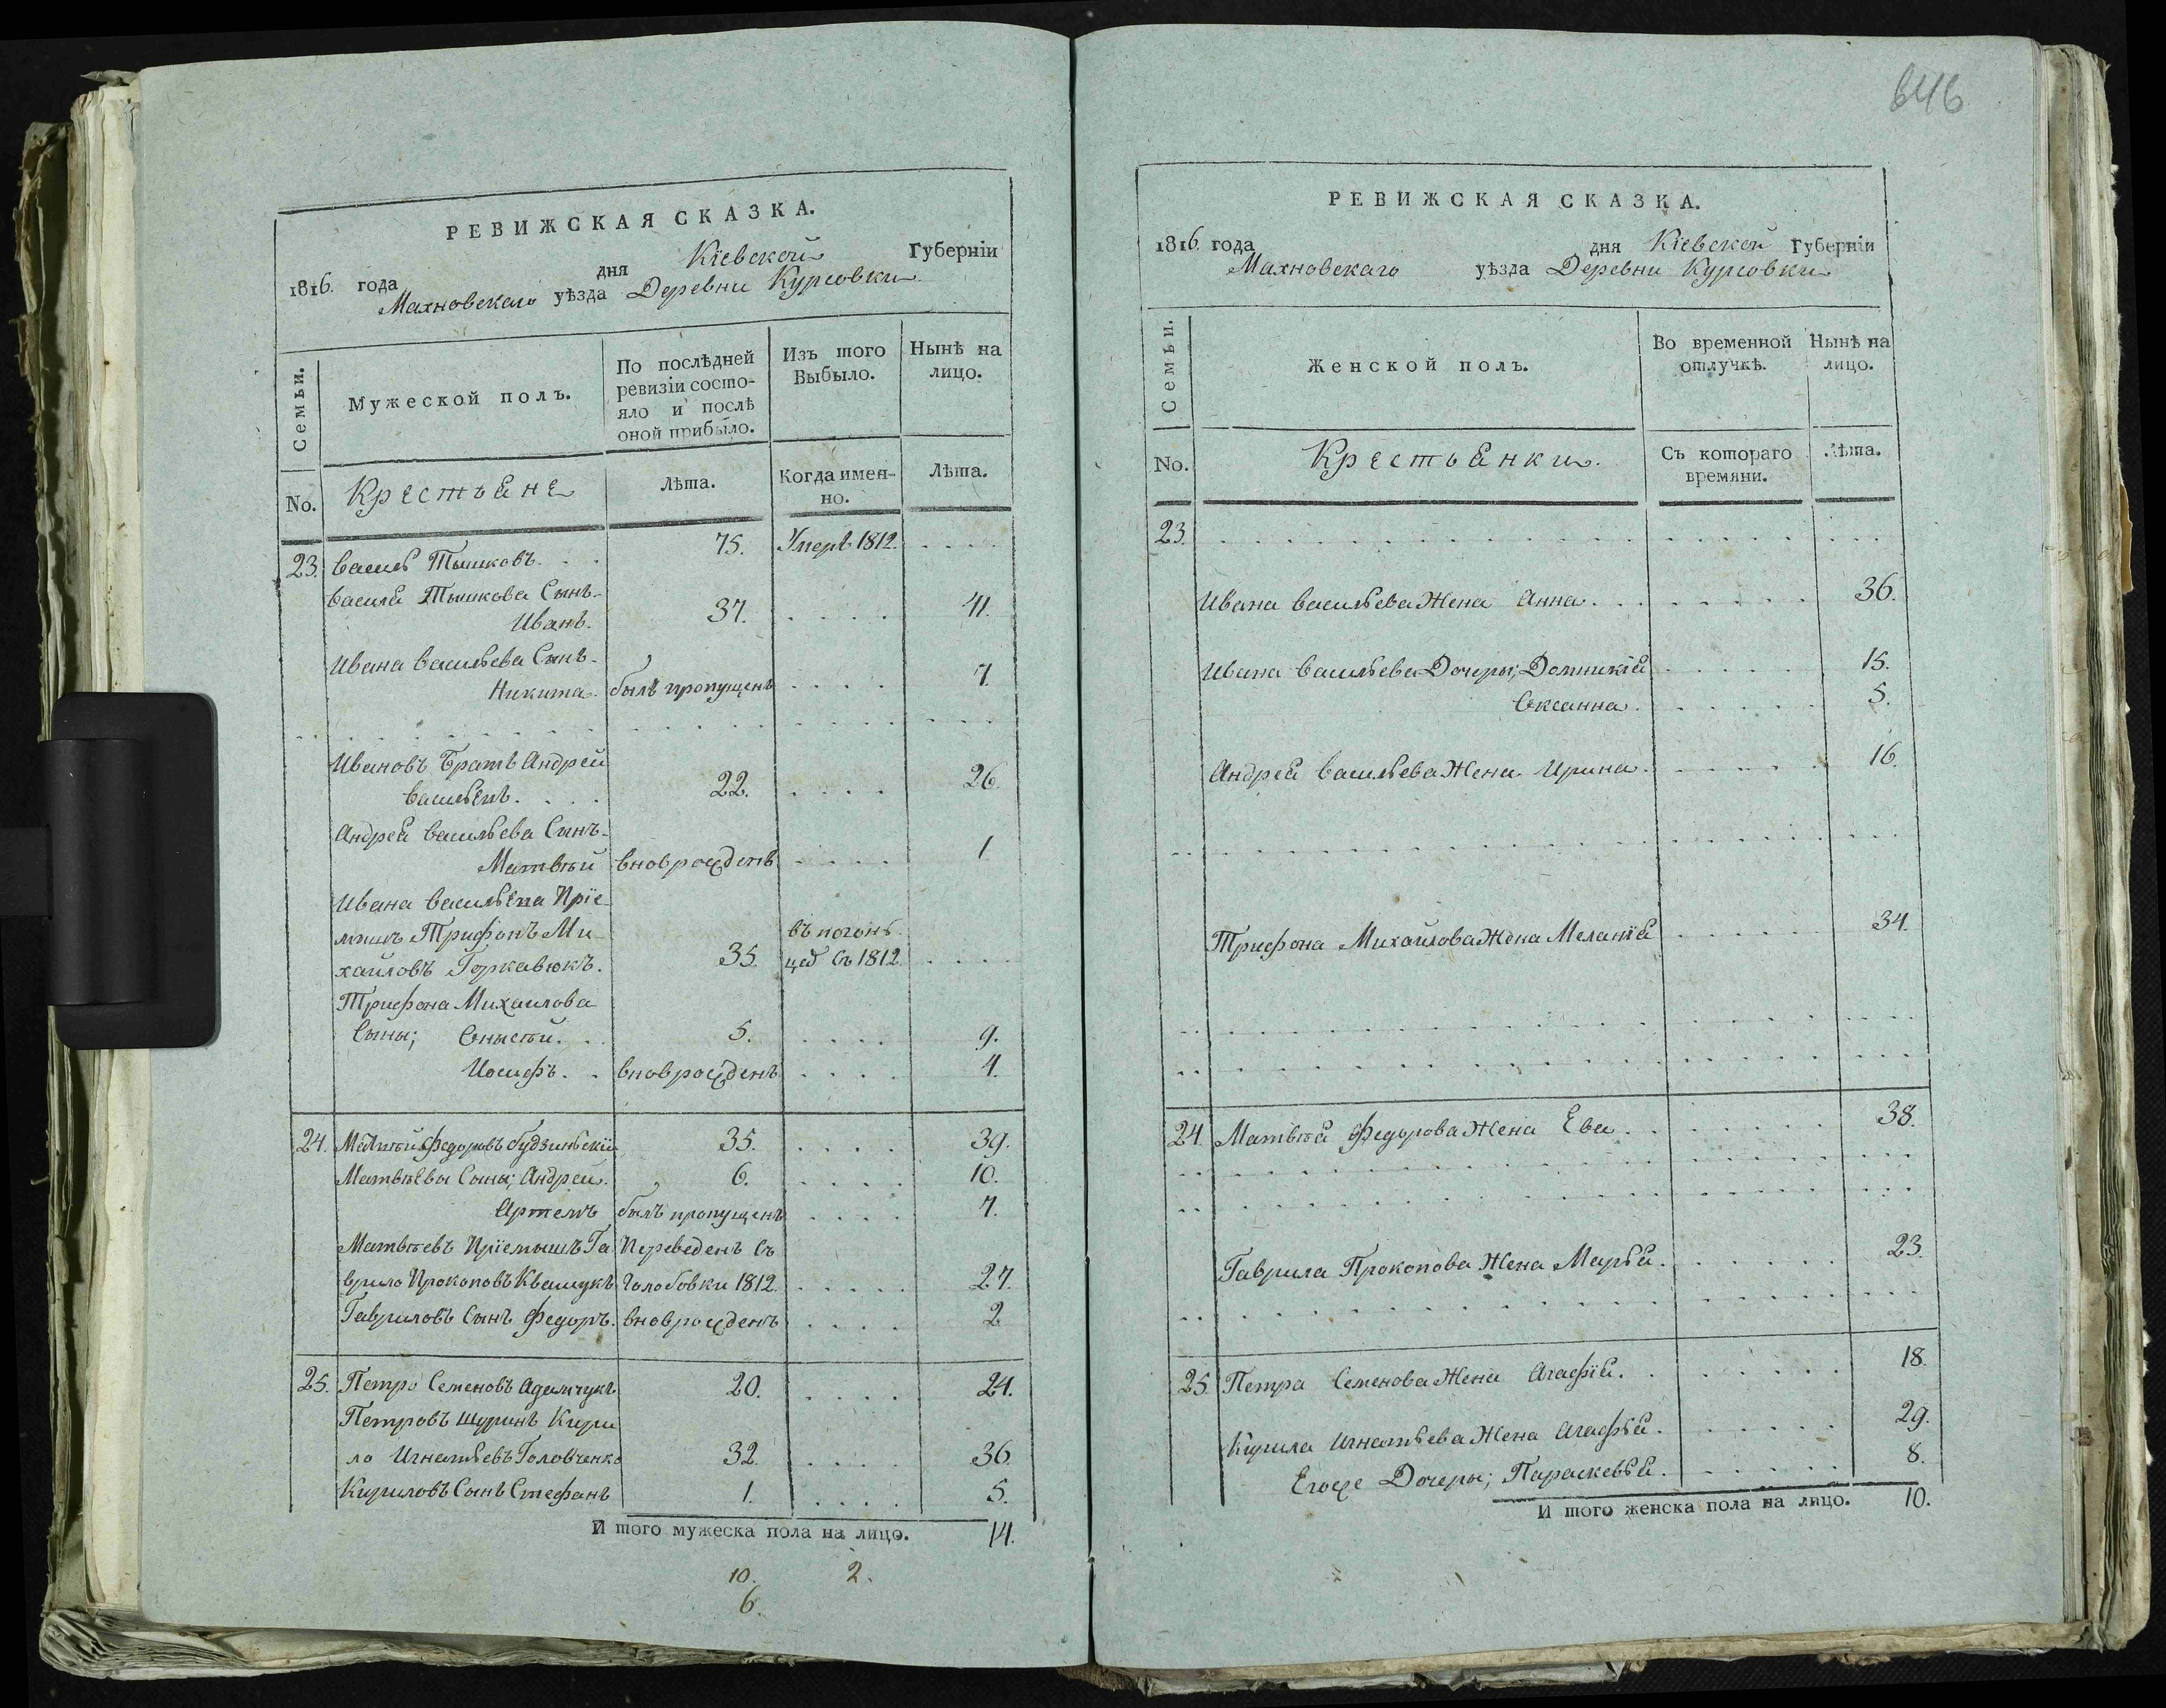 РЕВИЖСКАЯ СКАЗКА.
1816. года дня Кіевской Губерніи
Махновскаго уѣзда Деревни Курсовки
Семьи.
Мужеской полъ.
По послѣдней ревизіи состо-
яло и послѣ
оной прибыло.
Изъ того
Выбыло.
Нынѣ на
лицо.
No.
Крестьяне
Лѣта.
Когда имен-
но.
Лѣта.
23. Василь Тышковъ. 75. Умеръ 1812.
Василя Тышкова Сынъ
Иванъ. 37. 41.
Ивана Васильева Сынъ
Никита. былъ пропущенъ 7.
Ивановъ Братъ Андрей
Васильевъ. 22. 26.
Андрея Васильева Сынъ
Матвѣй вноврожденъ 1
Ивана Васильева Пріе-
мышъ Трифонъ Ми-
хайловъ 35. въ погонь-
цы Съ 1812
Трифона Михаилова
Сыны; Онысѣй. 5. 9.
Иосифъ. вноврожденъ 4.
24. Матвѣй Федоровъ Будзиньскій 35. 39.
Матвѣевы Сыны; Андрей. 6. 10.
Артемъ былъ пропущенъ 7.
Матвѣевъ Пріемышъ Га- Переведенъ Съ
врило Прокоповъ Квашукъ Голобовки 1812. 27.
Гавриловъ Сынъ Федоръ. вноврожденъ 2
25. Петро Семеновъ Адамчукъ 20. 24.
Петровъ Шуринъ Кири
ло Игнатьевъ Головченко 32. 36
Кириловъ Сынъ Стефанъ 1. 5.
И того мужеска пола на лицо. 14.
10. 2.
6.
646
РЕВИЖСКАЯ СКАЗКА.
1816. года дня Кіевской Губерніи
Махновскаго уѣзда Деревни Курсовки
Семьи.
Женской полъ.
Во временной
отлучкѣ.
Нынѣ на
лицо.
No.
Крестьянки.
Съ котораго
времяни.
Лѣта.
23.
Ивана Васильева Жена Анна. 36.
Ивана Васильева Дочеры; Домникія 15.
Оксанна. 5.
Андрея Васильева Жена Ирина. 16.
Трифона Михайлова Жена Меланія 34.
24. Матвѣя Федорова Жена Ева. 38.
Гаврила Прокопова Жена Марья. 23.
25. Петра Семенова Жена Агафія. 18.
Кирила Игнатьева Жена Агафья. 29.
Егоже Дочеры; Параскевья. 8.
И того женска пола на лицо. 10.